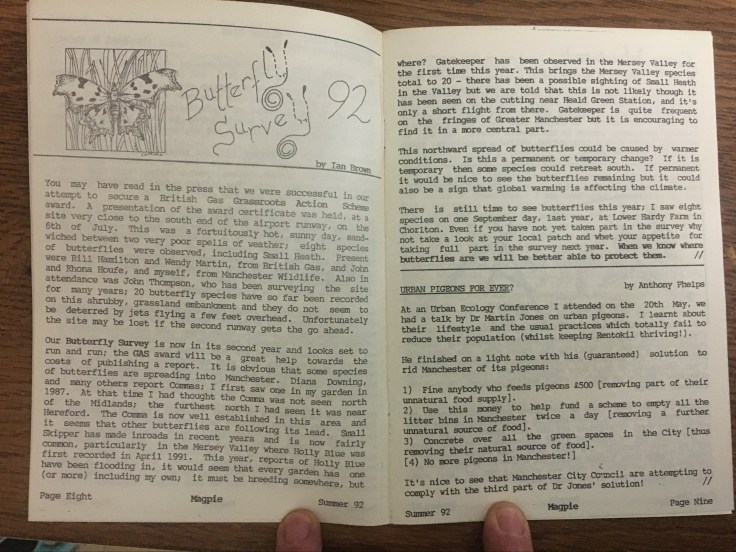 Butterfly
Survey 92
by Ian Brown
You may have read in the press that we were successful in our
attempt to secure a British Gas Grassroots Action Scheme
award. A presentation of the award certificate was held, at a
site very close to the south end of the airport runway, on the
6th of July. This was a fortuitously hot, sunny day, sand-
wiched between two very poor spells of weather; eight species
of butterflies were observed, including Small Heath. Present
were Bill Hamilton and Wendy Martin, from British Gas, and John
and Rhona Houfe, and myself, from Manchester Wildlife. Also in
attendance was John Thompson, who has been surveying the site
for many years; 20 butterfly species have so far been recorded
on this shrubby, grassland embankment and they do not seem to
be deterred by jets flying a few feet overhead. Unfortunately
the site may be lost if the second runway gets the go ahead.
Our Butterfly Survey is now in its second year and looks set to
run and run; the GAS award will be a great help towards the
costs of publishing a report. It is obvious that some species
of butterflies are spreading into Manchester. Diana Downing,
and many others report Commas; I first saw one in my garden in
1987. At that time I had thought the Comma was not seen north
of the Midlands; the furthest north I had seen it was near
Hereford. The Comma is now well established in this area and
it seems that other butterflies are following its lead. Small
Skipper has made inroads in recent years and is now fairly
common, particularly in the Mersey Valley where Holly Blue was
first recorded in April 1991. This year, reports of Holly Blue
have been flooding in, it would seem that every garden has one
(or more) including my own; it must be breeding somewhere, but
Page Eight Magpie Summer 92
where? Gatekeeper has been observed in the Mersey Valley for
the first time this year. This brings the Mersey Valley species
total to 20 - there has been a possible sighting of Small Heath
in the Valley but we are told that this is not likely though it
has been seen on the cutting near Heald Green Station, and it's
only a short flight from there. Gatekeeper is quite frequent
on the fringes of Greater Manchester but it is encouraging to
find it in a more central part.
This northward spread of butterflies could be caused by warmer
conditions. Is this a permanent or temporary change? If it is
temporary then some species could retreat south. If permanent
it would be nice to see the butterflies remaining but it could
also be a sign that global warming is affecting the climate.
There is still time to see butterflies this year; I saw eight
species on one September day, last year, at Lower Hardy Farm in
Chorlton. Even if you have not yet taken part in the survey why
not take a look at your local patch and whet your appetite for
taking full part in the survey next year. When we know where
butterflies are we will be better able to protect them. //
URBAN PIGEONS FOR EVER? by Anthony Phelps
At an Urban Ecology Conference I attended on the 20th May, we
had a talk by Dr Martin Jones on urban pigeons. I learnt about
their lifestyle and the usual practices which totally fail to
reduce their population (whilst keeping Rentokil thriving!).
He finished on a light note with his (guaranteed) solution to
rid Manchester of its pigeons:
1) Fine anybody who feeds pigeons £500 [removing part of their
unnatural food supply].
2) Use this money to help fund a scheme to empty all the
litter bins in Manchester twice a day [removing a further
unnatural source of food].
3) Concrete over all the green spaces in the City [thus
removing their natural source of food].
[4) No more pigeons in Manchester!]
It's nice to see that Manchester City Council are attempting to
comply with the third part of Dr Jones' solution! //
Summer 92 Magpie Page Nine